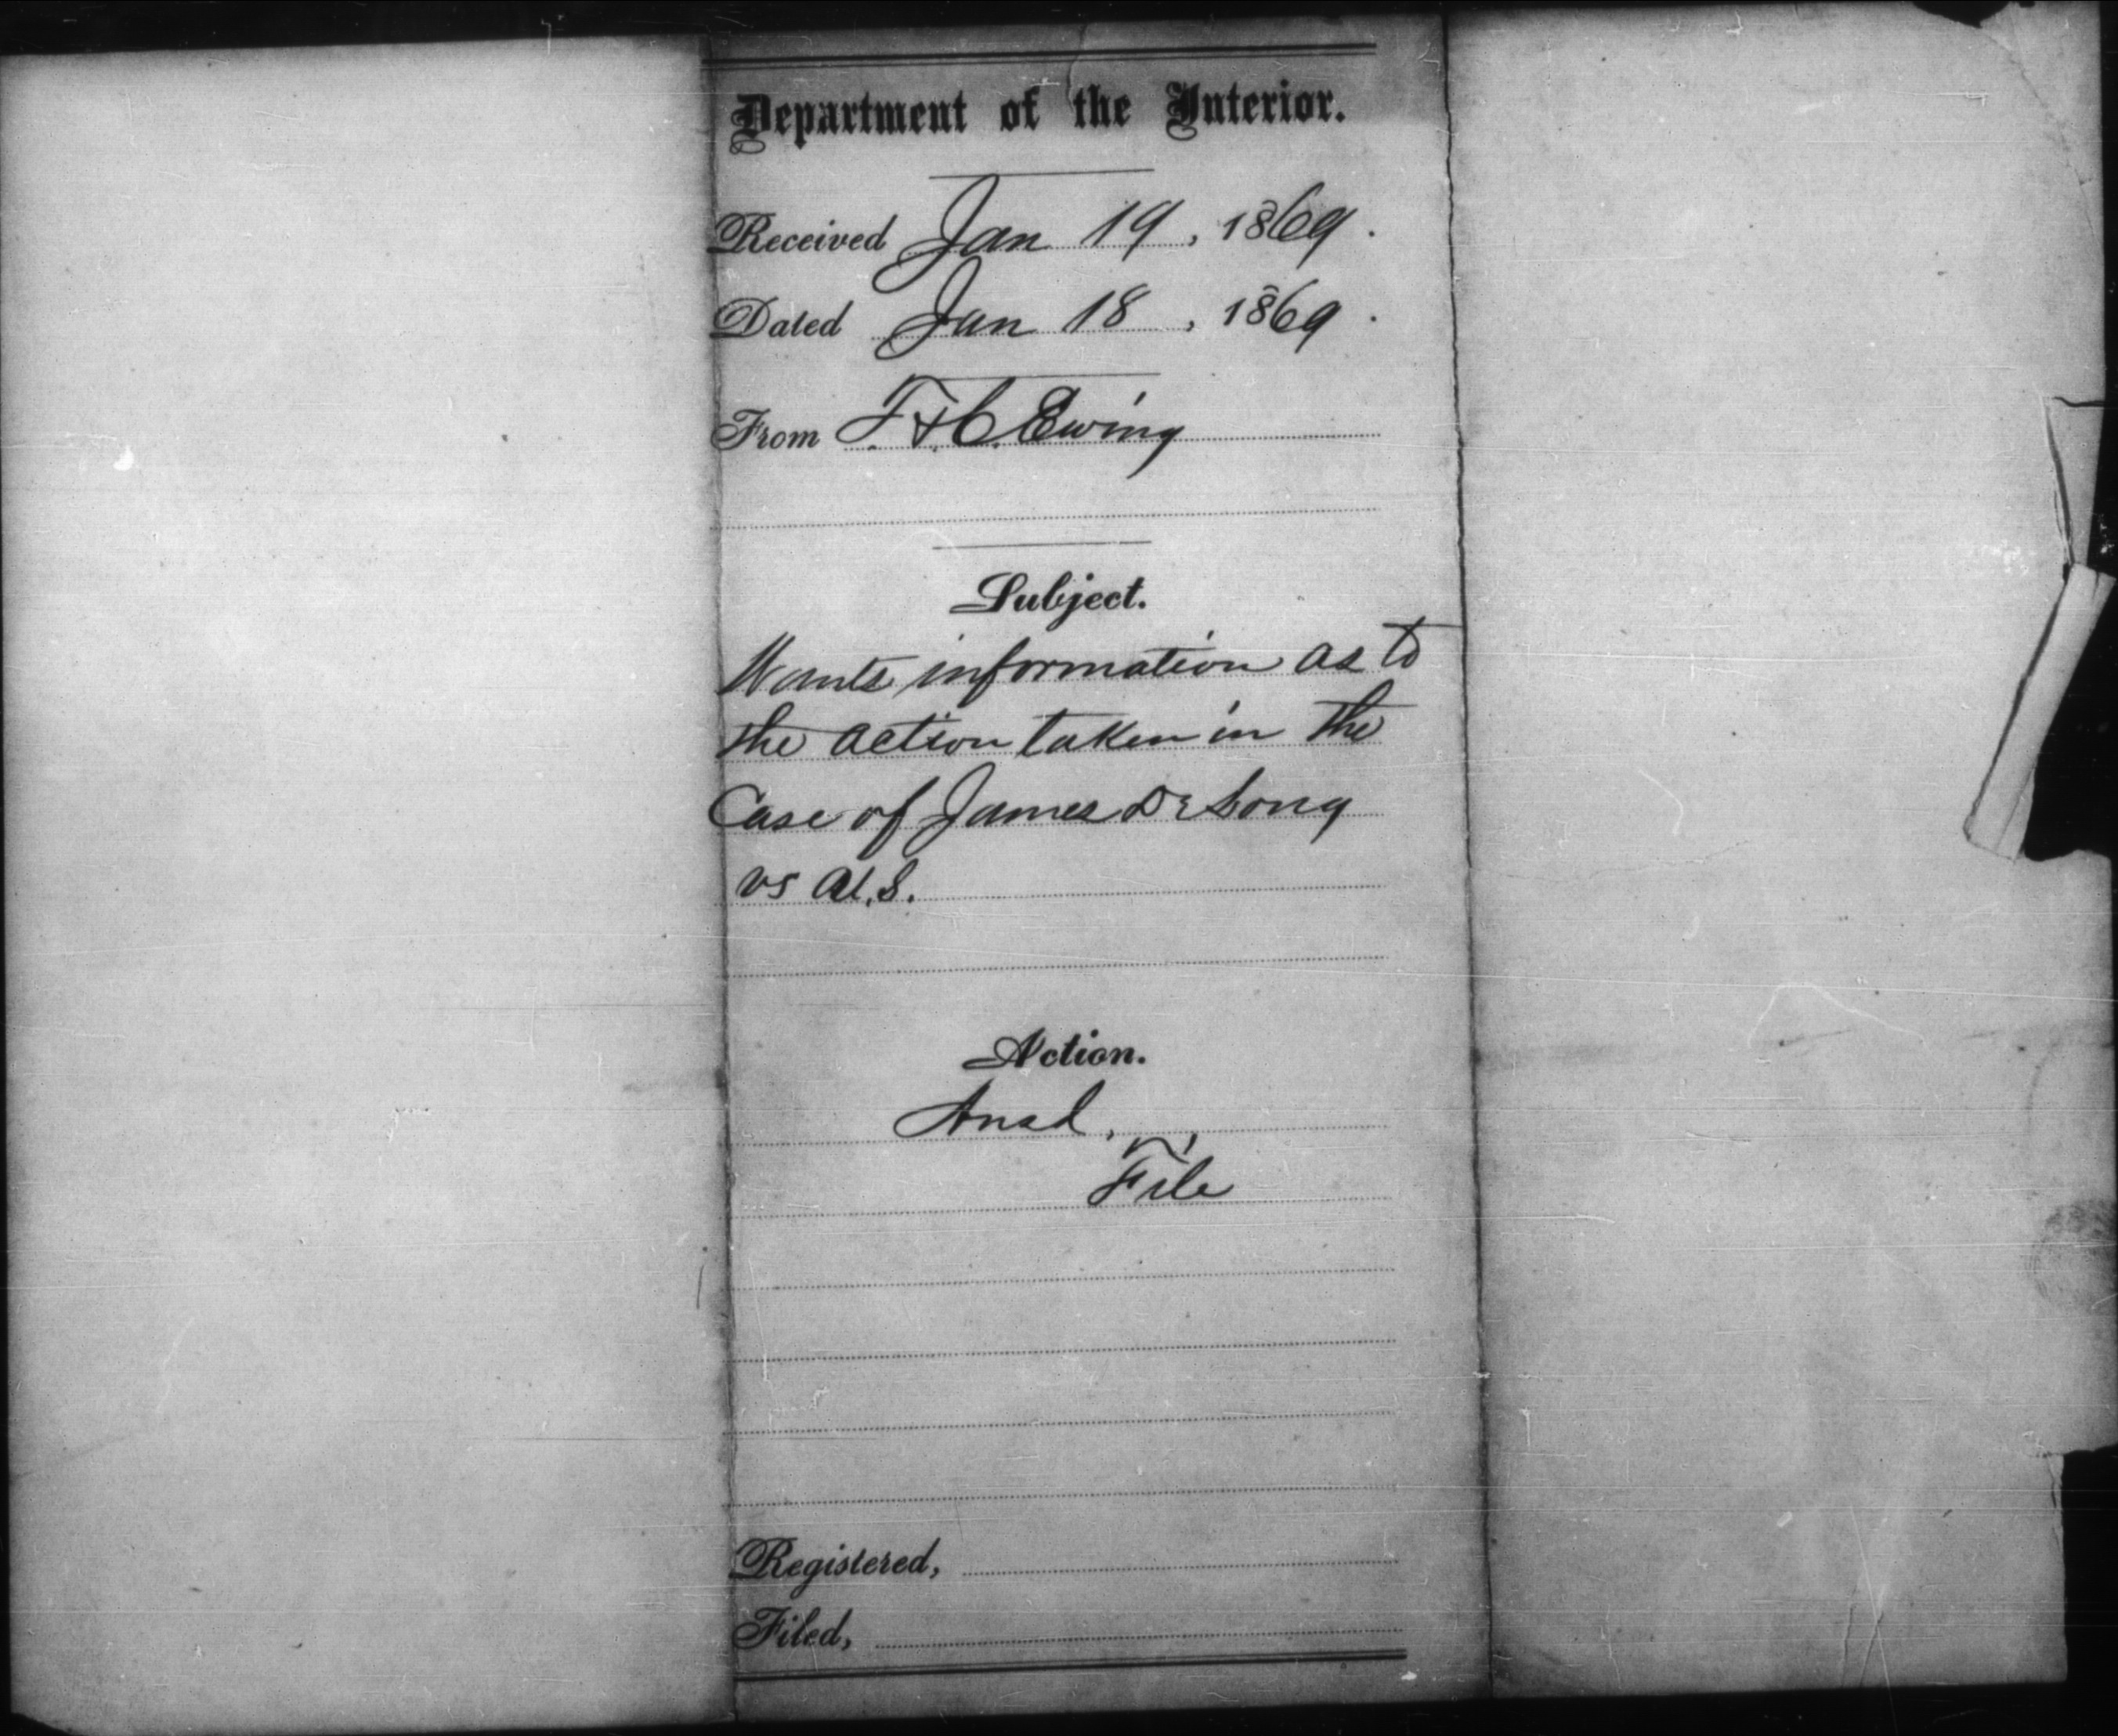 Department of the Interior.
Received Jan 19, 1869.
Dated Jan 18, 1869.
From T. & C. Ewing
Subject.
Wants information as to
the action taken in the
Case of James De Long
vs U.S.
Action.
Ansd,
File
Registered,
Filed,